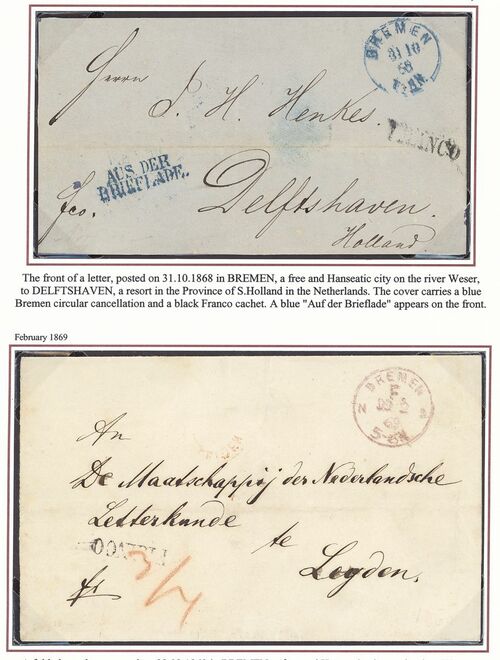 BREMEN
31 10
68
Herrn
J. H. Henkes.
FRANCO
AUS DER
BRIEFLADE.
fco.
Delftshaven.
Holland
The front of a letter, posted on 31.10.1868 in BREMEN, a free and Hanseatic city on the river Weser,
to DELFTSHAVEN, a resort in the Province of S.Holland in the Netherlands. The cover carries a blue
Bremen circular cancellation and a black Franco cachet. A blue "Auf der Brieflade" appears on the front.
February 1869
BREMEN
An
De Maatschappij der Nederlandsche
Letterkunde
te
Leyden.